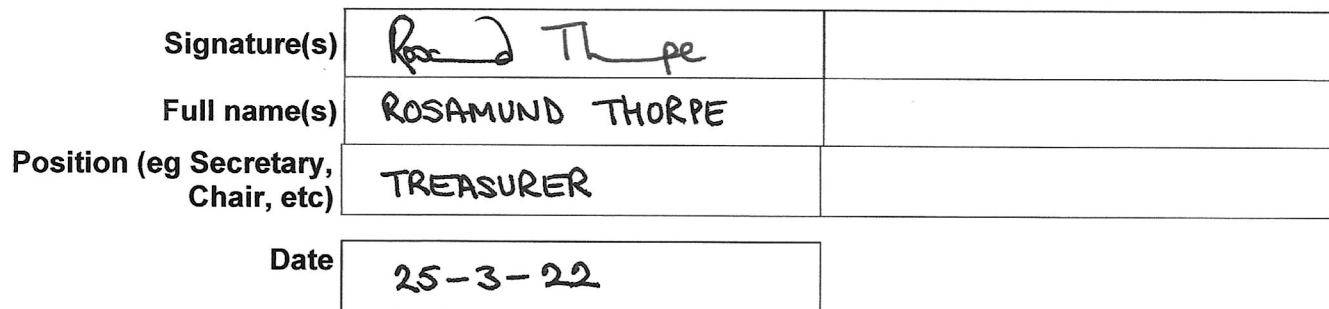 Signature(s) Rosamund Thorpe
Full name(s) ROSAMUND THORPE
Position (eg Secretary,
Chair, etc) TREASURER
Date 25-3-22